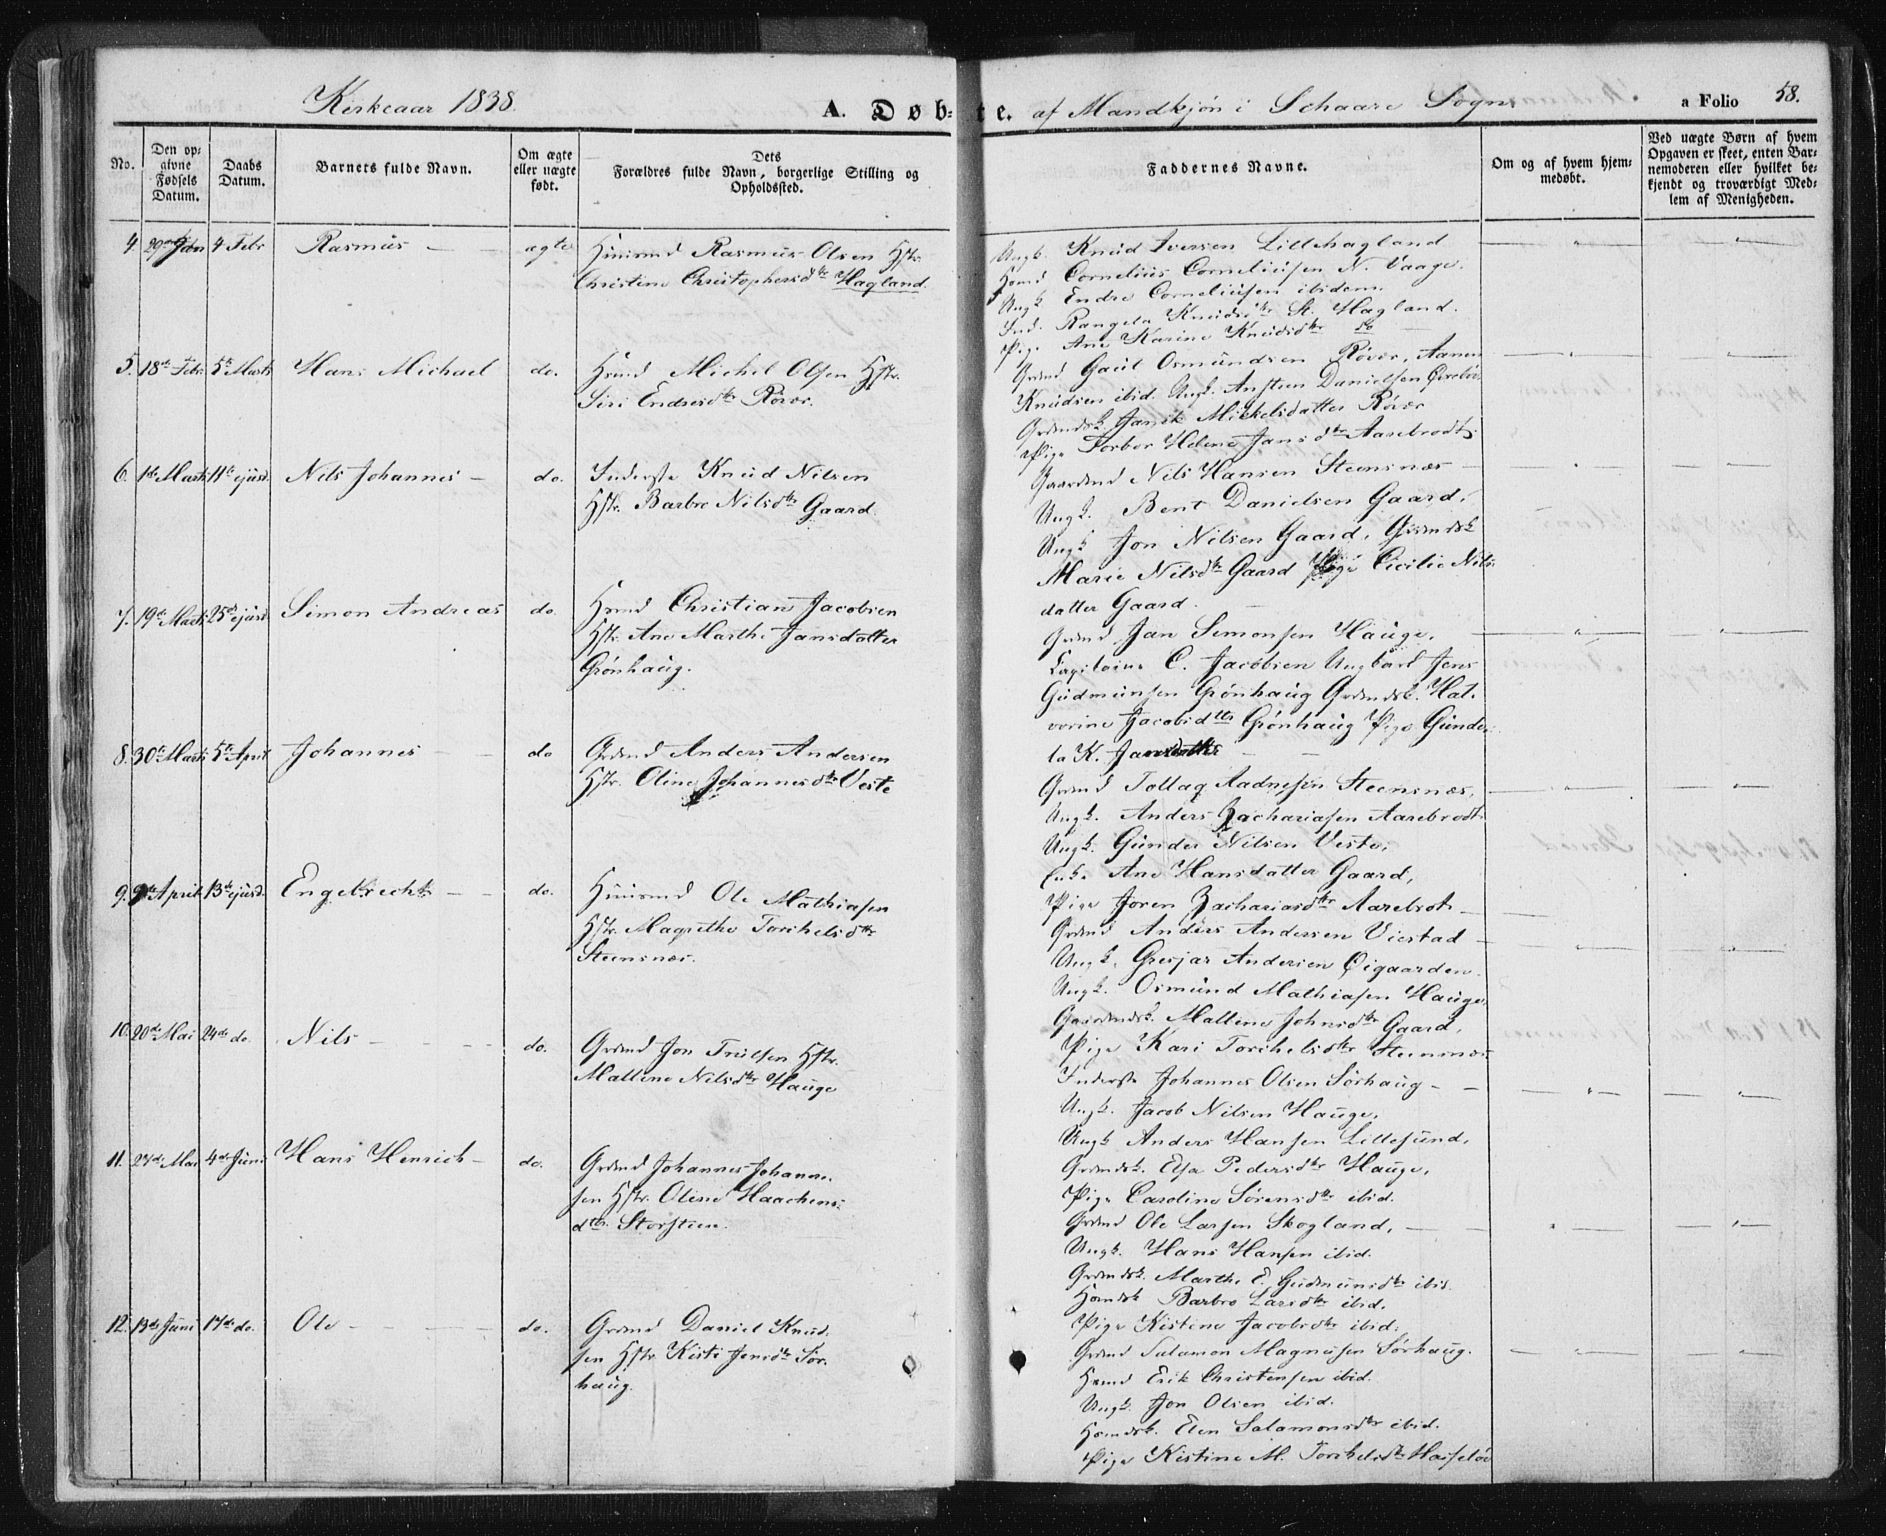 Kirkeaar 1838.
A. Døbte. af Mandkjøn i Schaare Sogn.
a Folio 58.
No.
Den opgivne Fødsels Datum.
Daabs Datum.
Barnets fulde Navn.
Om ægte eller uægte født.
Dets Forældres fulde Navn, borgerlige Stilling og Opholdssted.
Faddernes Navne.
Om og af hvem hjemmedøbt.
Ved uægte Børn af hvem Opgaven er skeet, enten Barnemoderen eller hvilket bekjendt og troværdigt Medlem af Menigheden.
4. 29de Jan 4 Febr Rasmus ægte Huusmd Rasmus Olsen Hstr.
Christine Christophersdtr Hagland.
Ungk. Knud Iversen Lillehagland
Hsmd Cornelius Corneliusen N. Vaage.
Ungk Endre Corneliusen ibidem.
Rangela Knudsdtr St. Hagland.
Pige Ane Karine Knudsdtr do
5. 18de Febr. 5te Marts Hans Michael do. Hsmd Michel Olsen Hstr.
Siri Endresdtr Røvær.
Grdmd Gaul Osmundsen Røvær, Aanen
Knudsen ibid. Ungk. Ansten Danielsen
Grdmdsk Michelsdatter Røvær
Pige Torbor Helene Jansdtr Aarebrodt
6. 1ste Marts 11te ejusd. Nils Johannes do. Inderste Knud Nilsen
Hstr. Barbro Nilsdtr Gaard
Gaardmd Nils Hansen Steensnæs
Ungk. Bent Danielsen Gaard,
Ungk Jon Nilsen Gaard, Grdmdsk
Marie Nilsdtr Gaard Pige Cicilie Nils
datter Gaard.
7. 19de Marts 25de ejusd. Simon Andreas do. Hsmd Christian Jacobsen
Hstr. Ane Marthe Jansdatter
Grønhaug.
Grdmd Jan Simonsen Hauge,
Capitaine C. Jacobsen Ungkarl Jens
Gudmunsen Grønhaug Grdmdsk. Hal
vorine Jacobsdtter Grønhaug Pige Gunde
la K. Jansdatter
8. 30te Marts 5te April Johannes do Grdmd Anders Andersen
Hstr. Oline Johannesdtr Veste
Grdmd Tollag Aadnesen Steensnæs,
Ungk. Anders Zachariasen Aarebrodt
Ungk. Gunder Nilsen Veste,
Ane Hansdatter Gaard,
Pige Joren Zachariasdtr Aarebrot
9. 9de April 13de ejusd. Engelbrecht do. Huusmd Ole Mathiasen
Hstr. Magrethe Torchelsdtr
Steensnæs.
Grdmd Anders Andersen Viestad
Ungk. Gresjar Andersen Øigaarden
Ungk. Osmund Mathiasen Hauge,
Gaardmdsk. Mallene Johnsdtr Gaard,
Pige Kari Torchelsdtr Steensnæs
10. 20de Mai 24de do. Nils do. Grdmd Jon Trulsen Hstr.
Mallene Nilsdtr Hauge
Inderste Johannes Olsen Sørhaug
Ungk. Jacob Nilsen Hauge,
Ungk Anders Hansen Lillesund,
Grdmdsk. Elsa Pedersdtr Hauge,
Pige Caroline Sørensdtr ibid.
11. 27de Mai 4de Juni Hans Henrich do. Grdmd Johannes Johanne
sen Hstr. Oline Haachens
dtr. Storsteen.
Grdmd Ole Larsen Skogland,
Ungk. Hans Hansen ibid.
Grdmdsk. Marthe E. Gudmunsdtr ibid.
Hsmdsk Barbro Larsdtr ibid.
Pige Kistine Jacobsdtr ibid.
12. 13de Juni 17de do. Ole do. Grdmd Daniel Knud
sen Hstr. Kisti Jensdtr Sør
haug.
Grdmd Salamon Magnusen Sørhaug.
Hsmd Erik Christensen ibid.
Ungk. Jon Olsen ibid.
Hsmdsk. Elen Salamonsdtr ibid.
Pige Kistine M. Torchelsdtr Hasseløe